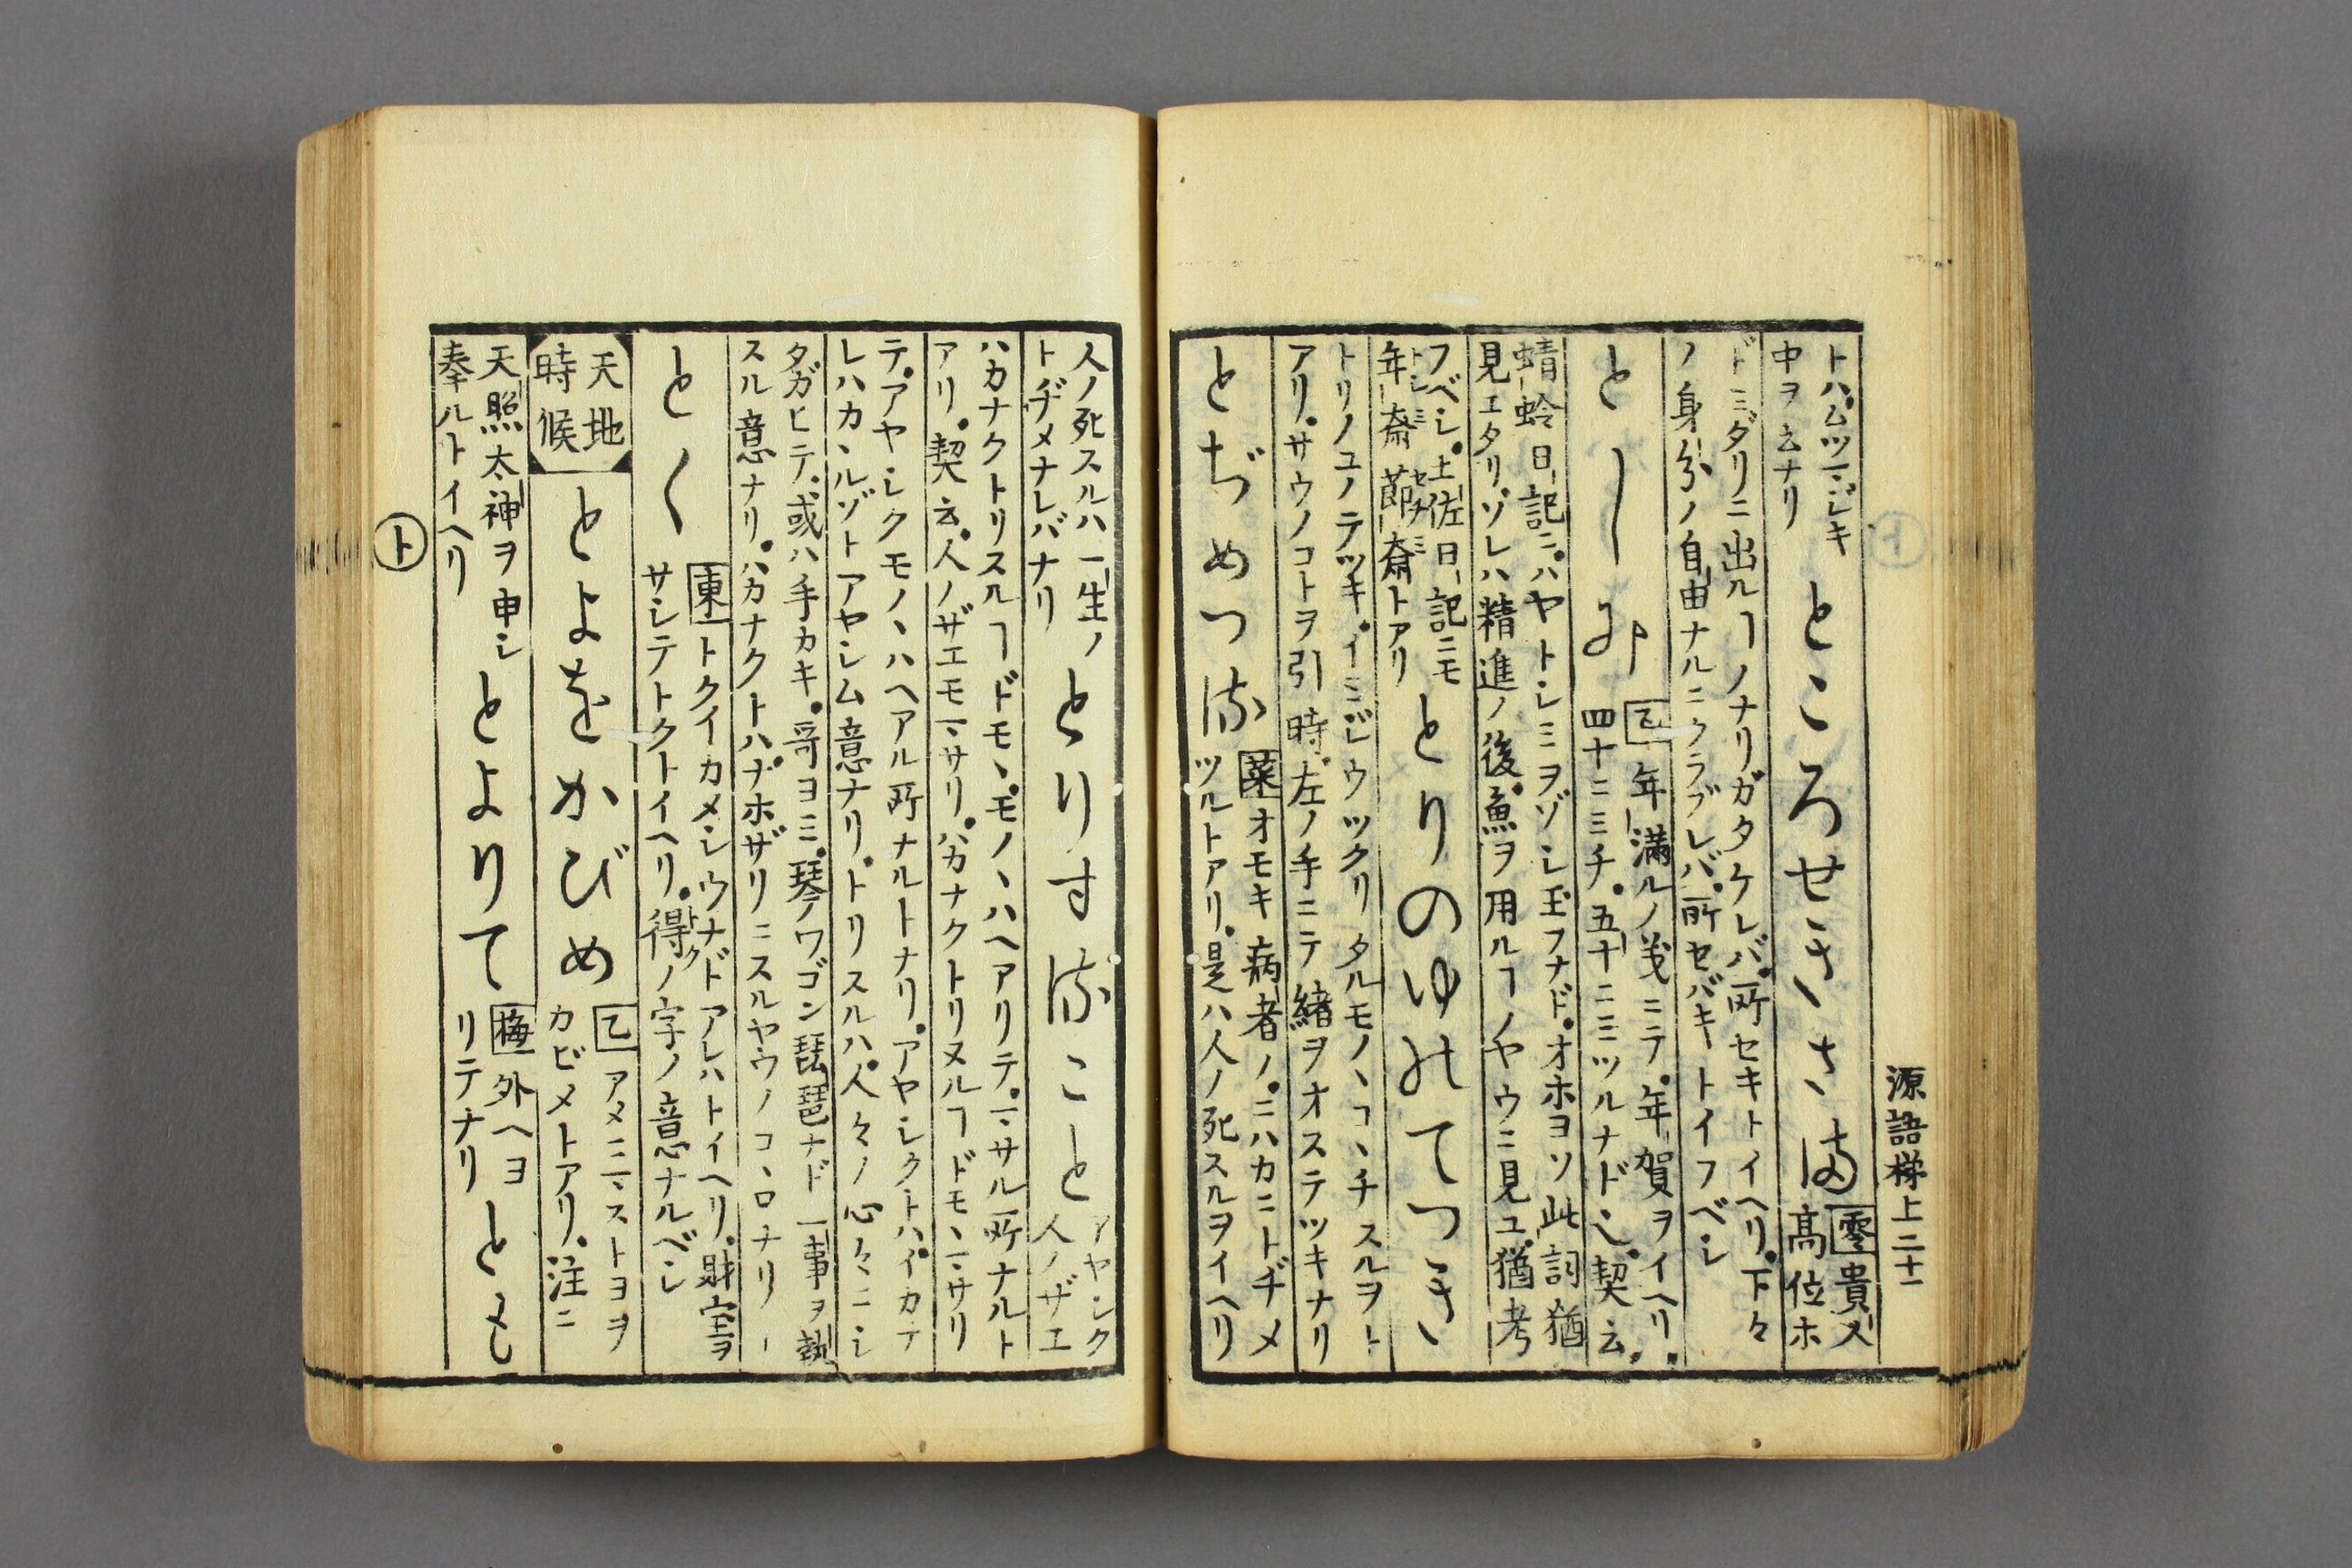 源語梯上二十一
トハムツマジキ
中ヲ云ナリ
ところせきさま
零貴人
高位ホ
ドミダリニ出ルヿノナリガタケレバ所セキトイヘリ下々
ノ身分ノ自由ナルニクラブレバ所セバキトイフベシ
としみ
乙年満ルノ義ニテ年賀ヲイヘリ
四十ニミチ五十ニミツルナド也契云
蜻蛉日記ニハヤトシミヲゾシ玉フナドオホヨソ此詞猶
見エタリソレハ精進ノ後魚ヲ用ルヿノヤウニ見ユ猶考
フベシ土佐日記ニモ
年齋節齋トアリ
トシミ セチミ
とりのゆみてつき
トリノユノテツキイミジウツクリタルモノヽコヽチスルヲト
アリサウノコトヲ引時左ノ手ニテ緒ヲオステツキナリ
とぢめつる
葉オモキ病者ノニハカニトヂメ
ツルトアリ是ハ人ノ死スルヲイヘリ
人ノ死スルハ一生ノ
トヂメナレバナリ
とりすること
アヤシク
人ノザエ
ハカナクトリスルヿドモヽモノヽハヘアリテマサル所ナルト
アリ契云人ノザエモマサリハカナクトリヌルヿドモヽマサリ
テアヤシクモノヽハヘアル所ナルトナリアヤシクトハイカテ
レハカヽルゾトアヤシム意ナリトリスルハ人々ノ心々ニシ
タガヒテ或ハ手カキ哥ヨミ琴ノワゴン琵琶ナド一事ヲ執
スル意ナリハカナクトハナホザリニスルヤウノコヽロナリ
とく
東トクイカメシウナドアレハトイヘリ財宝ヲ
サシテトクトイヘリ得ノ字ノ意ナルベシ
トク
天地
時候
とよをかびめ
乙アメニマストヨヲ
カビメトアリ注ニ
天照太神ヲ申シ
奉ルトイヘリ
とよりて
梅外ヘヨ
リテナリ
とも
ト